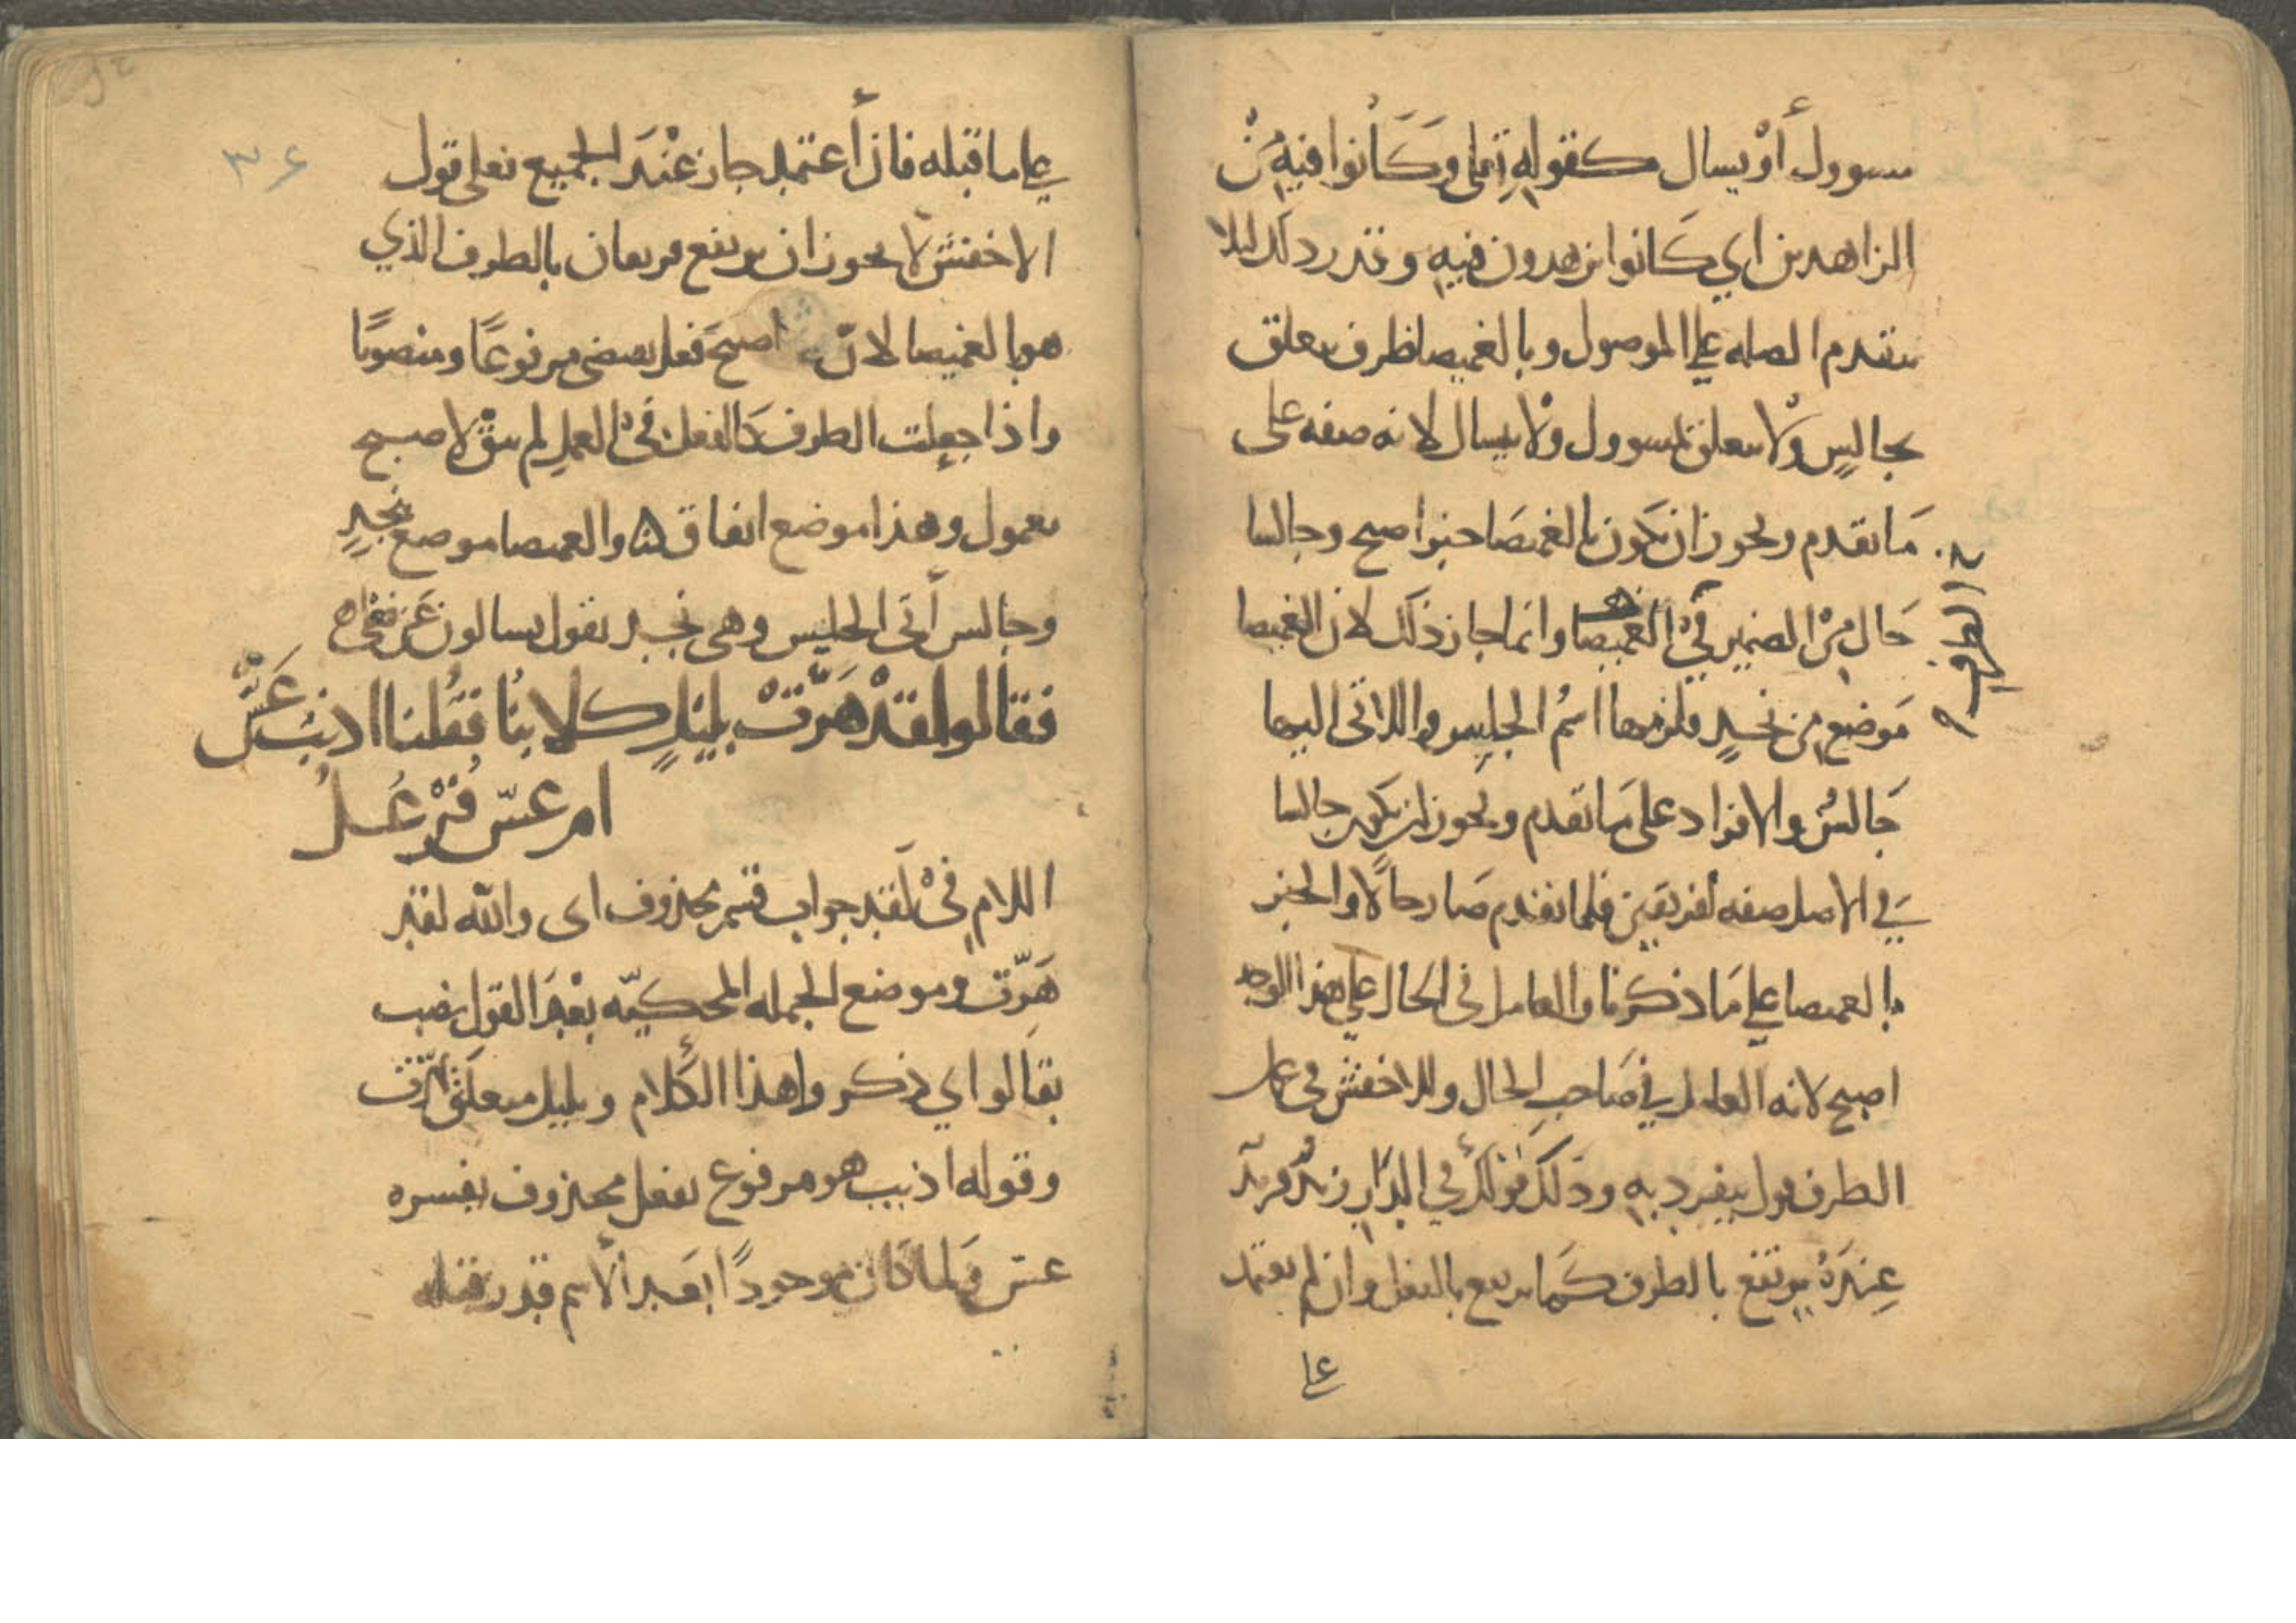 مسوول أو يسال كقوله تعالى وكانوا فيه من
الزاهدين اي كانوا يزهدون فيه وقدر ذلك ليلا
يتقدم الصله علي الموصول وبالغميصا ظرف يتعلق
بجالس ولا يتعلق بمسوول ولا بيسال لانه صفه على
ما تقدم ويجوز ان يكون بالغميصا خبر اصبح وجالسا
حال من الضمير في الغميصا وانما جاز ذلك لان الغميصا
موضع من نجد فلزمها اسم الجليس واللاتى اليها
جالس والافراد على ما تقدم ويجوز ان يكون جالسا
في الاصل صفه لفريقين فلما تقدم صار حالا والخبر
بالغميصا علي ما ذكرنا والعامل في الحال علي هذا الوجه
اصبح لانه العامل في صاحب الحال وللاخفش في عمل
الظرف قول ينفرد به وذلك قولك في الدار زيد فزيد
عنده يرتفع بالظرف كما يرتفع بالفعل وان لم يعتمد
علي
علي ما قبله فان أعتمد جاز عند الجميع فعلى قول
الاخفش لا يجوز ان يرتفع فريقان بالظرف الذي
هو بالغميصا لان اصبح فعل يقتضي مرفوعا ومنصوبا
واذا جعلت الظرف كالفعل في العمل لم يبق لاصبح
معمول وهذا موضع اتفاق والغميصا موضع بنجد
وجالس أتى الجليس وهي نجد يقول يسالون عن
فقالوا لقد هرت بليل كلابنا فقلنا اذيب عس
ام عس فرعل
اللام في لقد جواب قسم محذوف اى والله لقد
هرت وموضع الجمله المحكيه بعد القول نصب
بقالوا اي ذكروا هذا الكلام وبليل متعلق بهرت
وقوله اذيب هو مرفوع بفعل محذوف يفسره
عس فلما كان موجودا بعد الاسم قدر قبله
٣٤